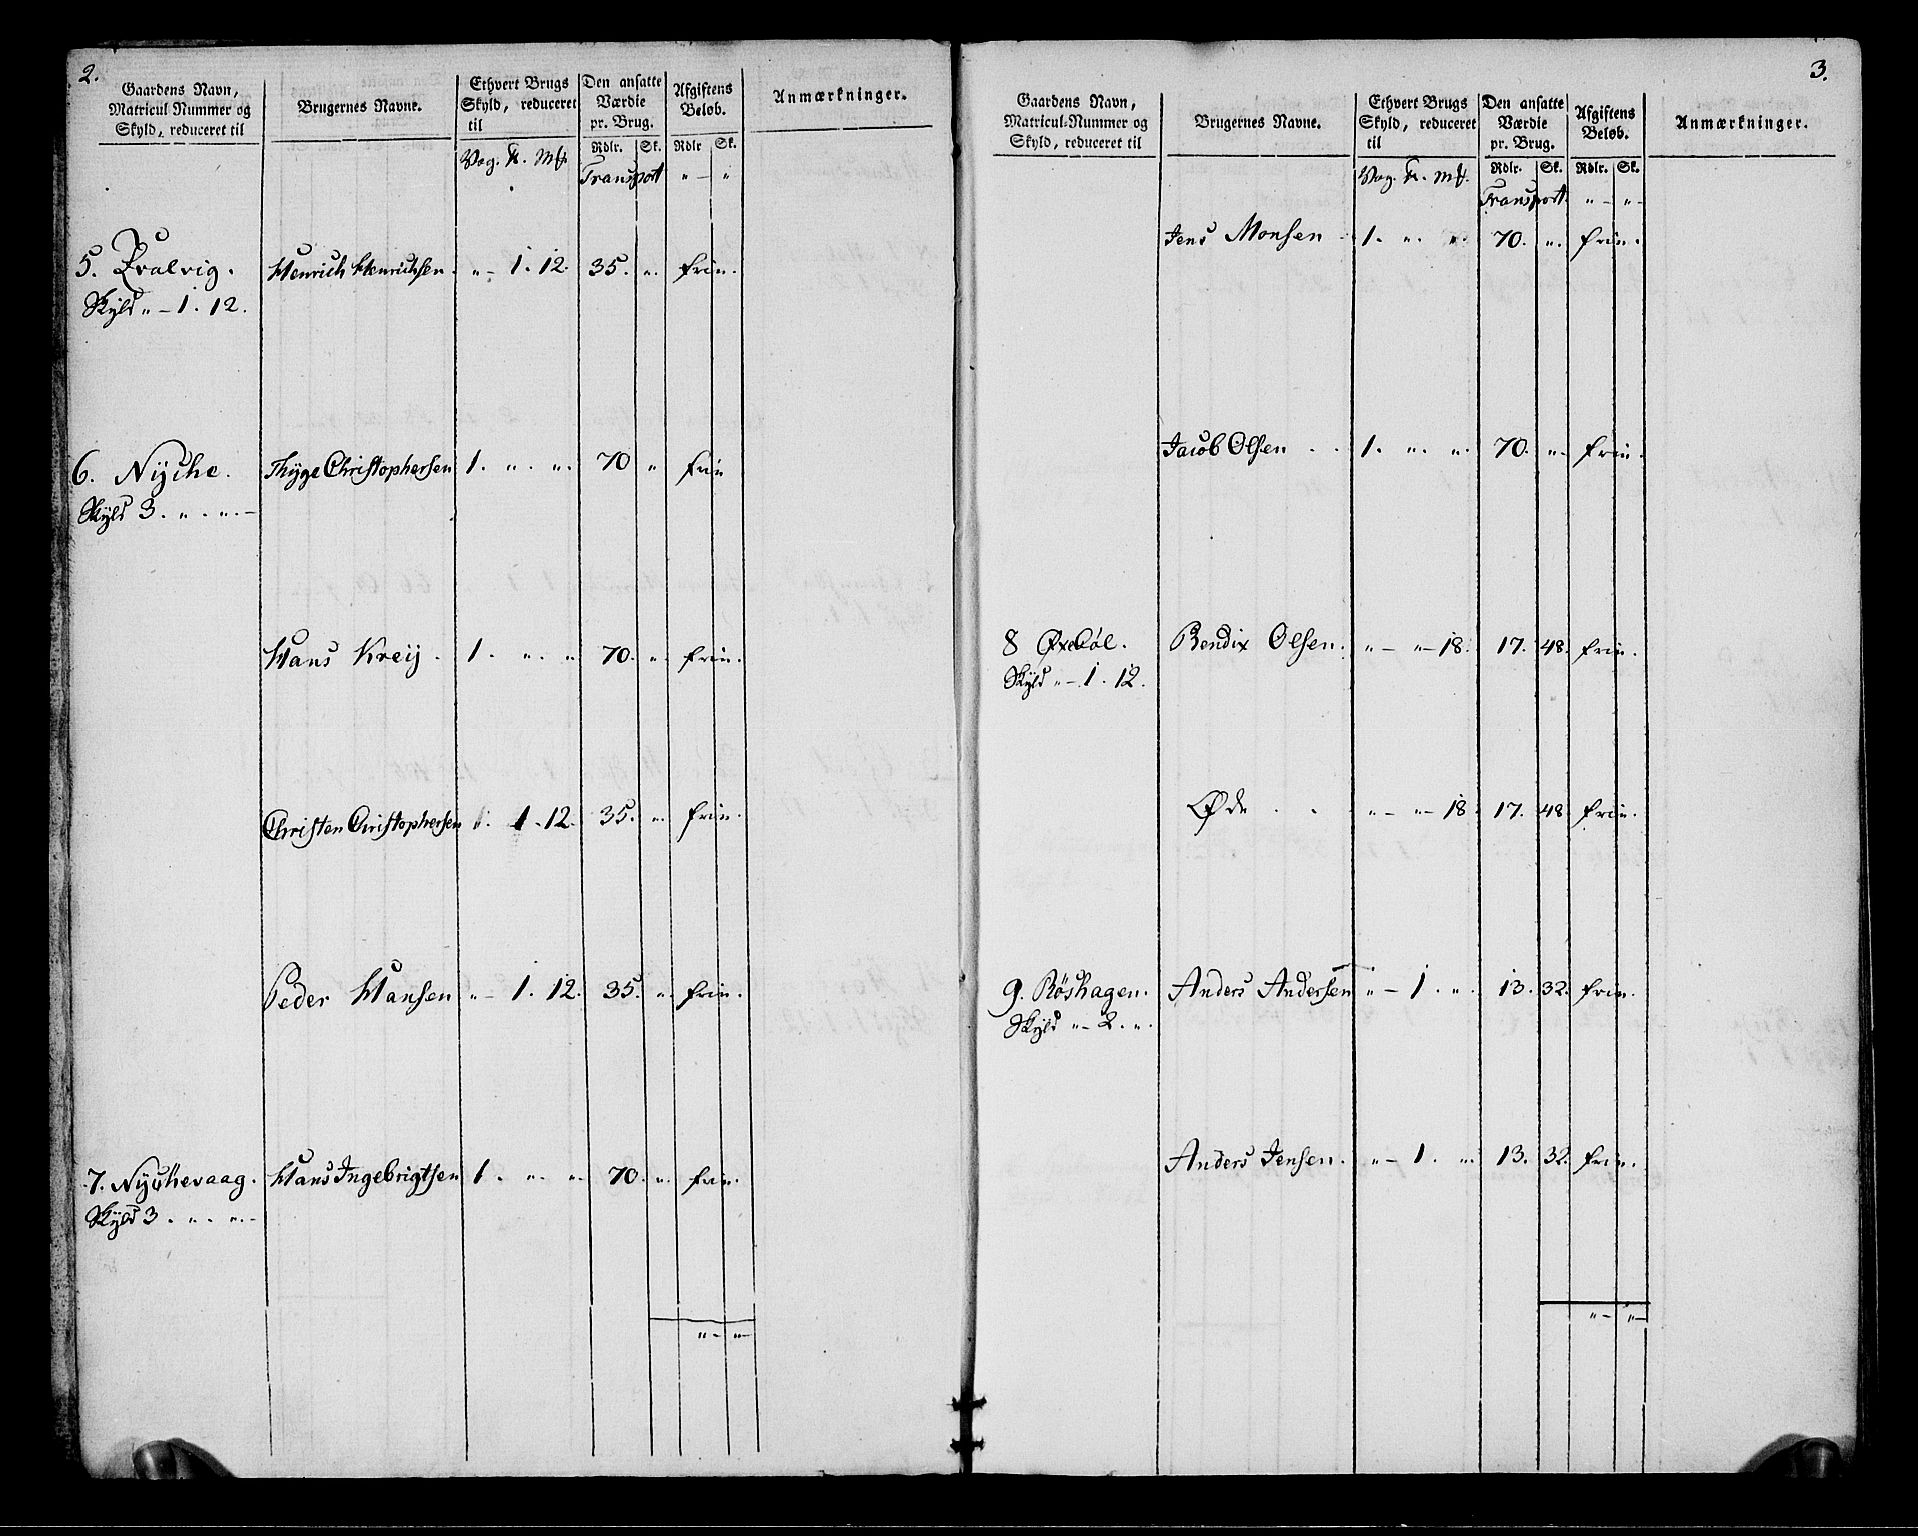 2.
Gaardens Navn, Matricul Nummer og Skyld, reduceret til
Brugernes Navne.
Ethvert Brugs Skyld, reduceret til
Den ansatte Værdie pr. Brug.
Afgiftens Beløb.
Anmærkninger.
Vog. Mk.
Rdlr. Sk. Rdlr Sk.
Transport " — "
5. Qvalvig. Henrich Henrichsen. " — 1. 12. 35. ". frie.
Skyld " — 1. 12.
6. Nyche. Thyge Christophersen 1. ". ". 70 " frie
Skyld 3. ". ". —
Hans Kreij. 1. ". " 70. ". frie.
Christen Christophersen 1. 12. 35. ". frie.
Peder Hansen " — 1. 12. 35. ". frie.
7. Nychevaag. Hans Ingebrigtsen 1. ". ". 70. ". frie.
Skyld 3. ". ". —
" — " —
3.
Gaardens Navn, Matricul-Nummer og Skyld, reduceret til
Brugernes Navne.
Ethvert Brugs Skyld, reduceret til
Den ansatte Værdie pr. Brug.
Afgiftens Beløb.
Anmærkninger.
Vog. Mk.
Rdlr. Sk. Rdlr. Sk.
Transport. " — " —
Jens Monsen 1. ". ". 70. ". frie.
Jacob Olsen . . 1. ". ". 70. ". frie.
8 Bendix Olsen. " — " — 18. 17. 48. frie.
Skyld " — 1. 12.
Øde . . " — " — 18. 17. 48. frie.
9. Røshagen. Anders Andersen " — 1. ". 13. 32. frie.
Skyld " — 2. ".
Anders Jensen. " — 1. ". 13. 32. frie.
" — " —